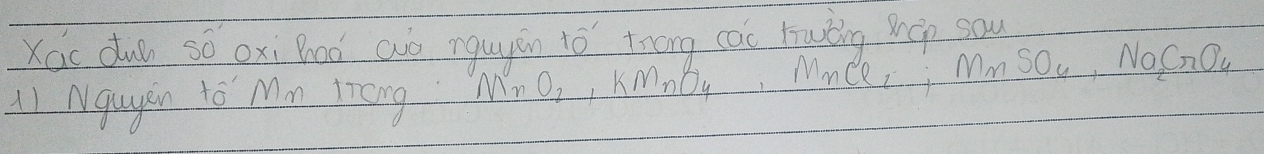 Xác định số oxi hoá của nguyên tố trong các trường hợp sau
1) Nguyên tố Mn trong MnO₂, KMnO₄, MnCl₂, MnSO₄, Na₂CrO₄